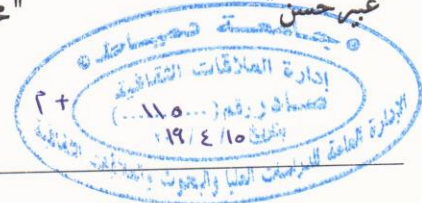 عبير حسن
جامعة دمياط
إدارة العلاقات الثقافية
صادر رقم (...١١٥...)
بتاريخ ١٩/٤/١٥
الإدارة العامة للدراسات العليا والبحوث والعلاقات الثقافية
م +